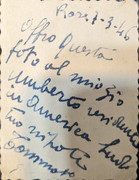 Bari, 7-3-46
Offro questa
foto al mio zio
Umberto residente
in America Suo
nipote
Tommaso